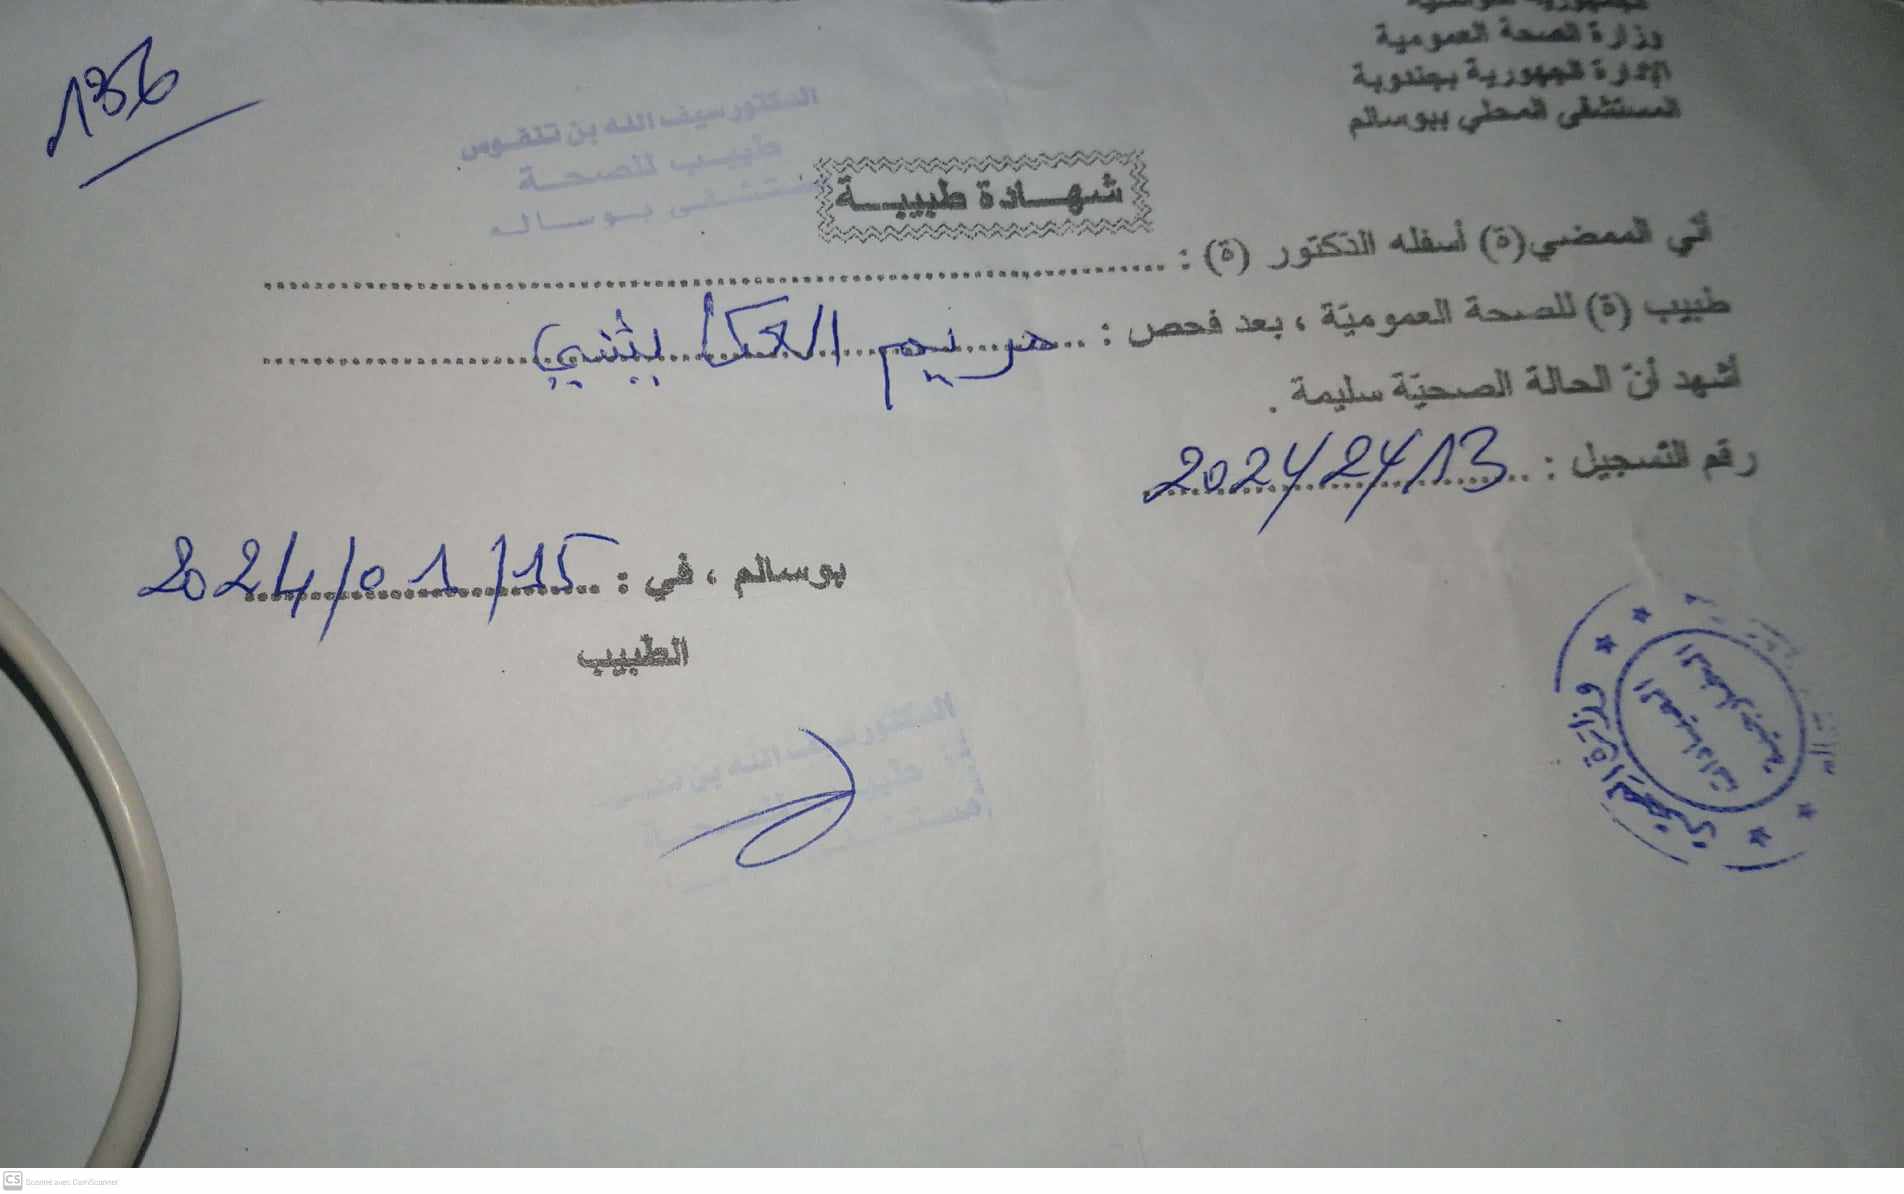 الجمهورية التونسية
وزارة الصحة العمومية
الإدارة الجهورية بجندوبة
المستشفى المحلي ببوسالم
136
الدكتور سيف الله بن تنفوس
طبيب للصحة
مستشفى بوسالم
شهادة طبية
أني الممضي(ة) أسفله الدكتور (ة) :
طبيب (ة) للصحة العموميّة ، بعد فحص : مريم
أشهد أنّ الحالة الصحيّة سليمة .
رقم التسجيل : 2024/24/13
بوسالم ، في : 2024/01/15
الطبيب
الدكتور سيف الله بن
طبيب للصحة
مستشفى
وزارة الصحة
العيادات
الخارجية
CS Scanné avec CamScanner